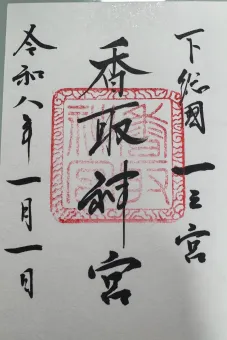 下総國一之宮
香取神宮
令和八年一月一日